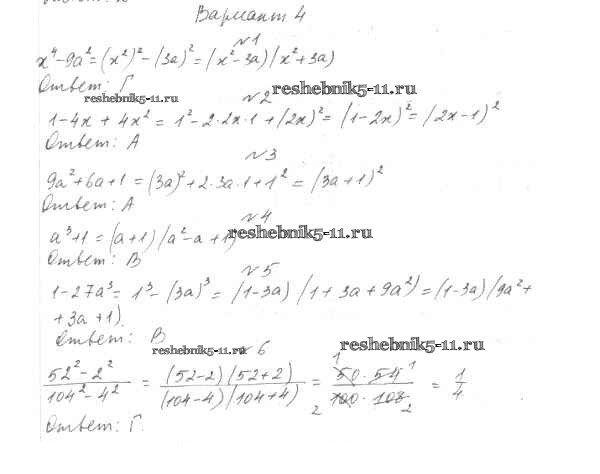 Вариант 4
№1
x⁴-9a²=(x²)²-(3a)²=(x²-3a)(x²+3a)
Ответ: Г
reshebnik5-11.ru
reshebnik5-11.ru
№2
1-4x+4x²=1²-2·2x·1+(2x)²=(1-2x)²=(2x-1)²
Ответ: А
№3
9a²+6a+1=(3a)²+2·3a·1+1²=(3a+1)²
Ответ: А
№4
a³+1=(a+1)(a²-a+1)
reshebnik5-11.ru
Ответ: В
№5
1-27a³=1³-(3a)³=(1-3a)(1+3a+9a²)=(1-3a)(9a²+
+3a+1).
Ответ: В
reshebnik5-11.ru
№6
reshebnik5-11.ru
52²-2²/104²-4² = (52-2)(52+2)/(104-4)(104+4) = 50·54/100·108 = 1/4
Ответ: Г.